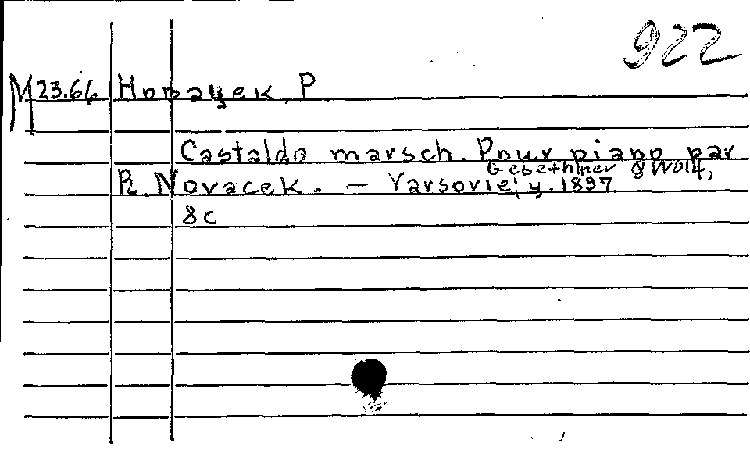 922
M 23.66 Новачек, Р
Castaldo marsch. Pour piano par
R. Novacek. — Varsovie, Gebethner & Wolf,
y. 1897
8c